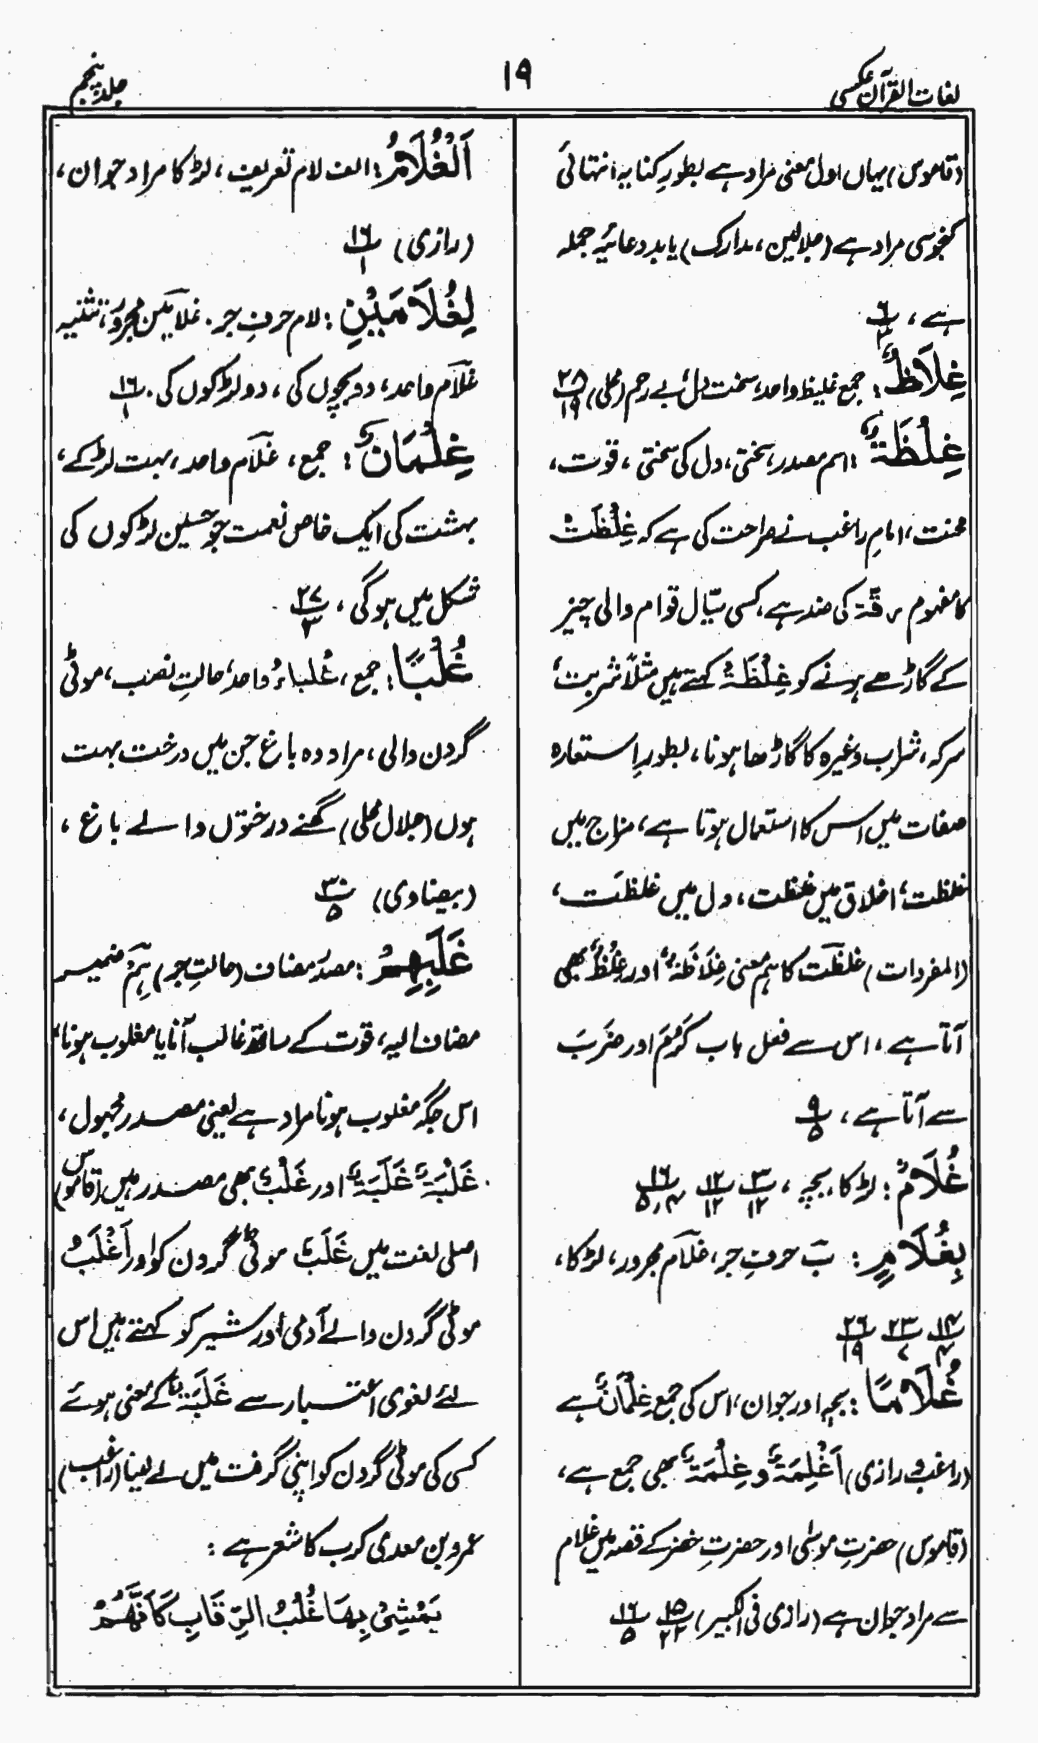 لغات القرآن عکسی
۱۹
جلد پنجم
(قاموس) یہاں اول معنی مراد ہے بطورِ کنایہ انتہائی
کنجوسی مراد ہے (جلالین، مدارک) یا بددعائیہ جملہ
ہے، ۶
غِلَاظٌ: جمع غلیظ واحد، سخت دل، بے رحم (محلی) ۲۸/۱۹
غِلْظَةً: اسم مصدر، سختی، دل کی سختی، قوت،
محنت، امامِ راغب نے صراحت کی ہے کہ غِلْظَتْ
کا مفہوم رِقَّۃ کی ضد ہے، کسی سیّال قوام والی چیز
کے گاڑھے ہونے کو غِلْظَۃٌ کہتے ہیں مثلاً شربت،
سرکہ، شراب وغیرہ کا گاڑھا ہونا، بطورِ استعارہ
صفات میں اس کا استعمال ہوتا ہے، مزاج میں
غلظت، اخلاق میں غلظت، دل میں غلظت،
(المفردات) غلظت کا ہم معنی غِلَاظَۃٌ اور غِلْظٌ بھی
آتا ہے، اس سے فعل باب کَرُمَ اور ضَرَبَ
سے آتا ہے، ۹/۵
غُلَامٌ: لڑکا، بچہ، ۳/۱۲ ۱۲/۱۲ ۱۶/۵،۴
بِغُلَامٍ: بَ حرفِ جر، غلام مجرور، لڑکا،
۱۴/۴ ۲۳/۷ ۲۶/۱۹
غُلَامًا: بچہ اور جوان، اس کی جمع غِلْمَانٌ ہے
(راغب و رازی) اَغْلِمَۃٌ و غِلْمَۃٌ بھی جمع ہے،
(قاموس) حضرتِ موسٰی اور حضرتِ خضر کے قصہ میں غلام
سے مراد جوان ہے (رازی فی الکبیر) ۱۵/۲۲ ۱۶/۵
اَلْغُلَامُ: الف لام تعریف، لڑکا مراد جوان،
(رازی) ۱۶/۱
لِغُلَامَيْنِ: لام حرفِ جر، غلامَین مجرور، تثنیہ
غلام واحد، دو بچوں کی، دو لڑکوں کی، ۱۶/۱
غِلْمَانٌ: جمع، غلام واحد، بہت لڑکے،
بہشت کی ایک خاص نعمت جو حسین لڑکوں کی
شکل میں ہوگی، ۲۷/۳
غُلْبًا: جمع، غُلباءُ واحد، حالتِ نصب، موٹی
گردن والی، مراد وہ باغ جن میں درخت بہت
ہوں (جلال محلی) گھنے درختوں والے باغ،
(بیضاوی) ۳۰/۵
غَلَبِهِمْ: مصدر مضاف (حالتِ جر) ہِمْ ضمیر
مضاف الیہ، قوت کے ساتھ غالب آنا یا مغلوب ہونا،
اس جگہ مغلوب ہونا مراد ہے یعنی مصدر مجہول،
غَلْبَۃٌ غَلَبَۃٌ اور غَلْبٌ بھی مصدر ہیں (قاموس)
اصلی لغت میں غَلَبَ موٹی گردن کو اور اَغْلَبُ
موٹی گردن والے آدمی اور شیر کو کہتے ہیں اس
لئے لغوی اعتبار سے غَلَبَۃٌ کے معنی ہوئے
کسی کی موٹی گردن کو اپنی گرفت میں لے لینا (راغب)
عمرو بن معدی کرب کا شعر ہے:
یَمْشِیْ بِھَا غُلْبُ الرِّقَابِ کَاَنَّھُمْ